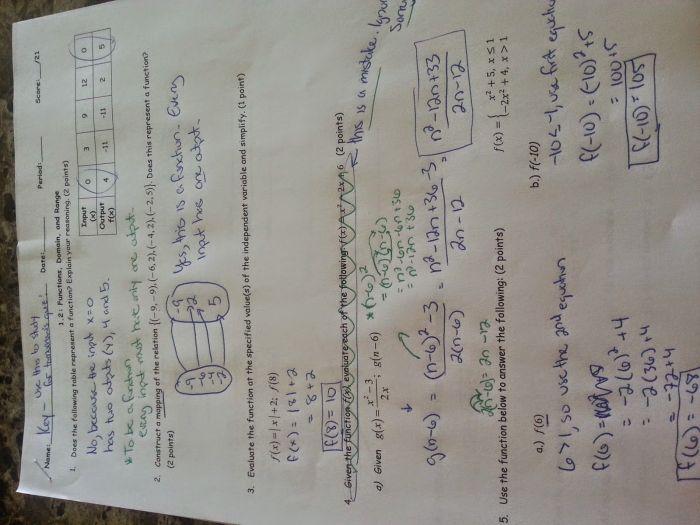 Name: Key Date: Period: Score: /21
use this to study
for tomorrow's quiz!
1.2: Functions, Domain, and Range
1. Does the following table represent a function? Explain your reasoning. (2 points)
Input (x) 0 3 9 12 0
Output f(x) 4 -11 -11 2 5
No, because the input x=0
has two outputs (y), 4 and 5.
* To be a function
every input must have only one output.
2. Construct a mapping of the relation {(-9, -9), (-6, 2), (-4, 2), (-2, 5)}. Does this represent a function?
(2 points)
-9
-6
-4
-2
-9
2
5
Yes, this is a function. Every
input has one output.
3. Evaluate the function at the specified value(s) of the independent variable and simplify. (1 point)
f(x) = |x| + 2; f(8)
= |8|+2
= 8+2
f(8) = 10
4. Given the function f(x), evaluate each of the following: (2 points)
this is a mistake.
a) Given g(x) = x² - 3 / 2x ; g(n - 6)
* (n-6)²
= (n-6)(n-6)
= n²-6n-6n+36
= n²-12n+36
g(n-6) = (n-6)² - 3 / 2(n-6) = n²-12n+36-3 / 2n-12 = n²-12n+33 / 2n-12
2(n-6) = 2n-12
5. Use the function below to answer the following: (2 points)
f(x) = { x² + 5, x ≤ 1
-2x² + 4, x > 1
a.) f(6)
6>1, so use the 2nd equation
f(6) =
= -2(6)²+4
= -2(36)+4
= -72+4
f(6) = -68
b.) f(-10)
-10 ≤ 1, use first equation
f(-10) = (-10)²+5
= 100+5
f(-10) = 105